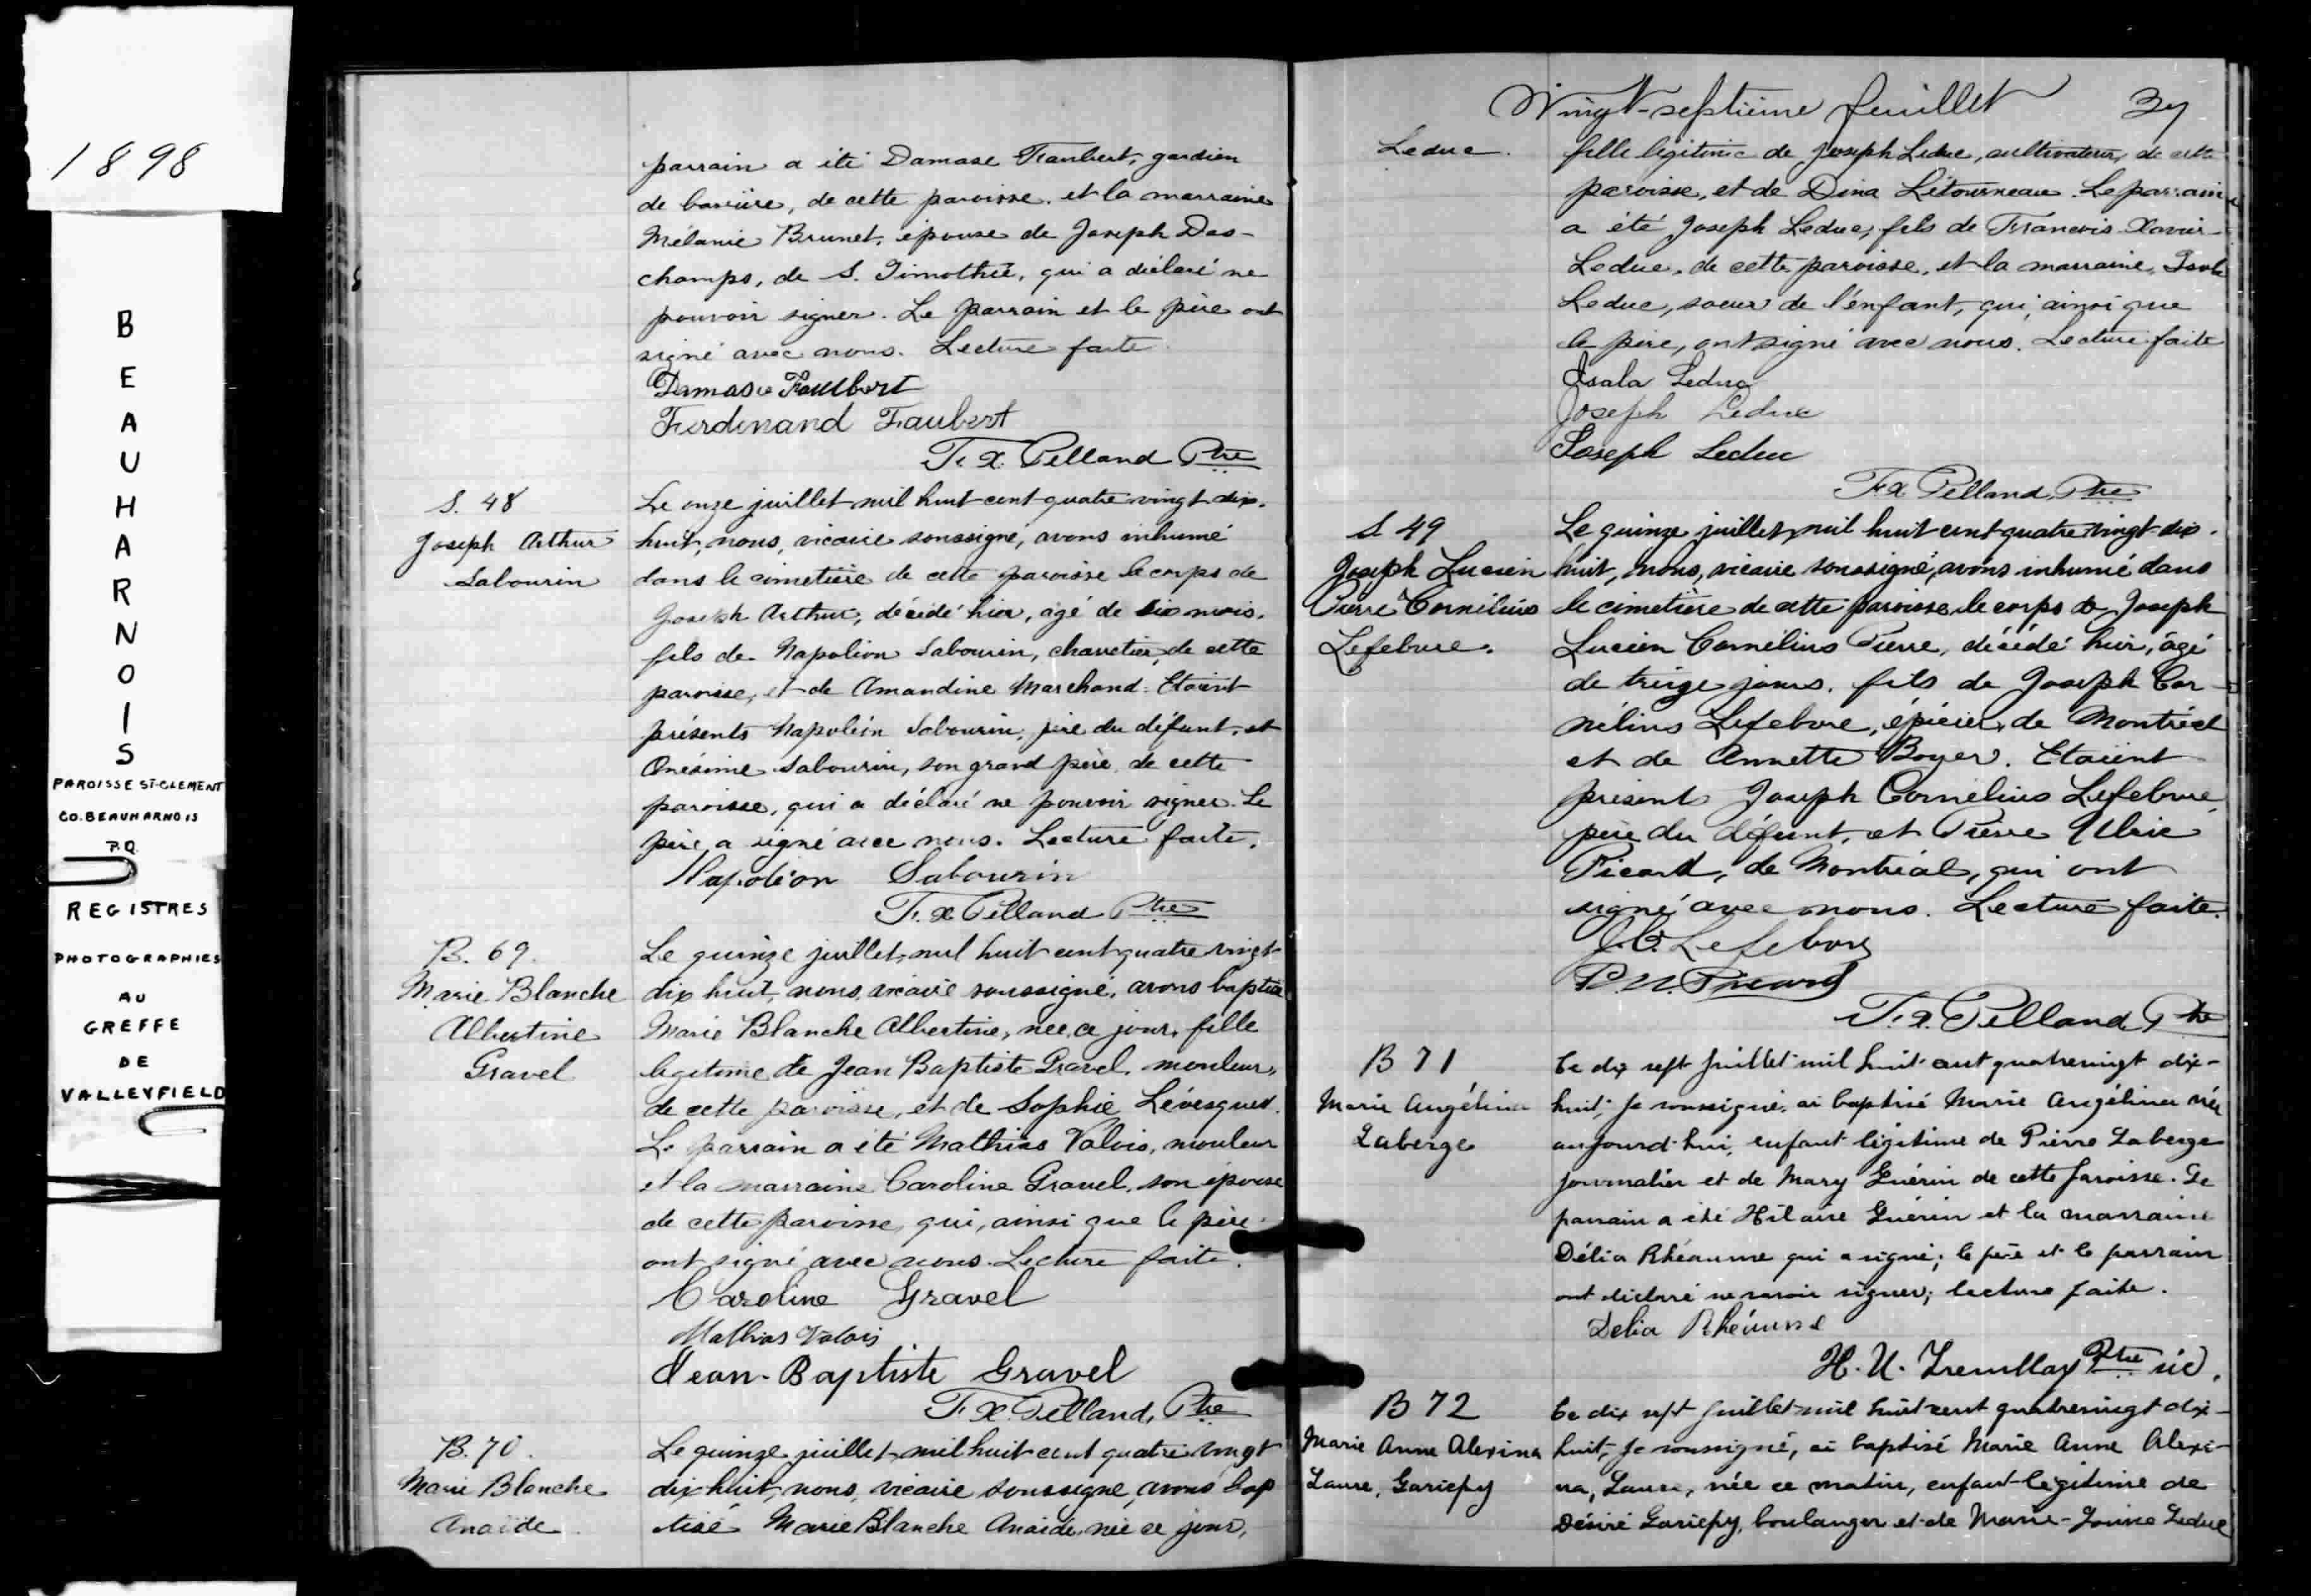 1898
BEAUHARNOIS
PAROISSE ST-CLEMENT
CO. BEAUHARNOIS
P.Q.
REGISTRES
PHOTOGRAPHIES
AU
GREFFE
DE
VALLEYFIELD
parrain a été Damase Faubert, gardien
de barrière, de cette paroisse, et la marraine
Mélanie Brunet, épouse de Joseph Des-
champs, de S. Timothée, qui a déclaré ne
pouvoir signer. Le parrain et le père ont
signé avec nous. Lecture faite
Damase Faubert
Ferdinand Faubert
F. X. Pelland Ptre
S. 48
Joseph Arthur
Sabourin
Le onze juillet mil huit cent quatre vingt dix-
huit, nous, vicaire soussigné, avons inhumé
dans le cimetière de cette paroisse le corps de
Joseph Arthur, décédé hier, agé de six mois,
fils de Napoléon Sabourin, charretier, de cette
paroisse, et de Amandine Marchand. Etaient
présents Napoléon Sabourin, père du défunt, et
Onésime Sabourin, son grand père, de cette
paroisse, qui a déclaré ne pouvoir signer. Le
père a signé avec nous. Lecture faite.
Napoléon Sabourin
F. X. Pelland Ptre
B. 69.
Marie Blanche
Albertine
Gravel
Le quinze juillet, mil huit cent quatre vingt
dix huit, nous, vicaire soussigné, avons baptisé
Marie Blanche Albertine, née, ce jour, fille
legitime de Jean Baptiste Gravel, mouleur,
de cette paroisse, et de Sophie Lévesque.
Le parrain a été Mathias Valois, mouleur
et la marraine Caroline Gravel, son épouse
de cette paroisse, qui, ainsi que le père
ont signé avec nous. Lecture faite.
Caroline Gravel
Mathias Valois
Jean-Baptiste Gravel
F. X. Pelland, Ptre
B. 70.
Marie Blanche
Anaïde
Le quinze juillet, mil huit cent quatre vingt
dix huit, nous, vicaire soussigné, avons bap
tisé Marie Blanche Anaïde, née ce jour,
Vingt-septième feuillet 27
Leduc.
fille légitime de Joseph Leduc, cultivateur, de cette
paroisse, et de Dina Létourneau. Le parrain
a été Joseph Leduc, fils de Francois-Xavier
Leduc, de cette paroisse, et la marraine,
Leduc, soeur de l'enfant, qui, ainsi que
le père, ont signé avec nous. Lecture faite
Isala Leduc
Joseph Leduc
Joseph Leduc
F. X. Pelland, Ptre
S 49
Joseph Lucien
Pierre Cornélius
Lefebvre.
Le quinze juillet, mil huit cent quatre vingt-dix-
huit, nous, vicaire soussigné, avons inhumé dans
le cimetière de cette paroisse, le corps de Joseph
Lucien Cornélius Pierre, décédé hier, âgé
de treize jours, fils de Joseph Cor-
nélius Lefebvre, épicier, de Montréal
et de Annette Boyer. Etaient
présent Joseph Cornélius Lefebvre,
père du défunt, et Pierre Ulric
Picard, de Montréal, qui ont
signé avec nous. Lecture faite.
J. C. Lefebvre
P. U. Picard
F. X. Pelland Ptre
B 71
Marie Angélina
Laberge
Ce dix sept juillet mil huit cent quatrevingt dix-
huit; je soussigné, ai baptisé Marie Angélina née
aujourd'hui, enfant légitime de Pierre Laberge
journalier et de Mary Guérin de cette paroisse. Le
parrain a été Hilaire Guérin et la marraine
Délia Rhéaume qui a signé; le père et le parrain
ont déclaré ne savoir signer; lecture faite.
Delia Rhéaume
H. U. Tremblay Ptre vic.
B 72
Marie Anne Alexina
Laure, Gariépy
Ce dix sept juillet mil huit cent quatrevingt dix-
huit; je soussigné, ai baptisé Marie Anne Alexi-
na, Laure, née ce matin, enfant légitime de
Désiré Gariépy, boulanger et de Marie-Louise Leduc